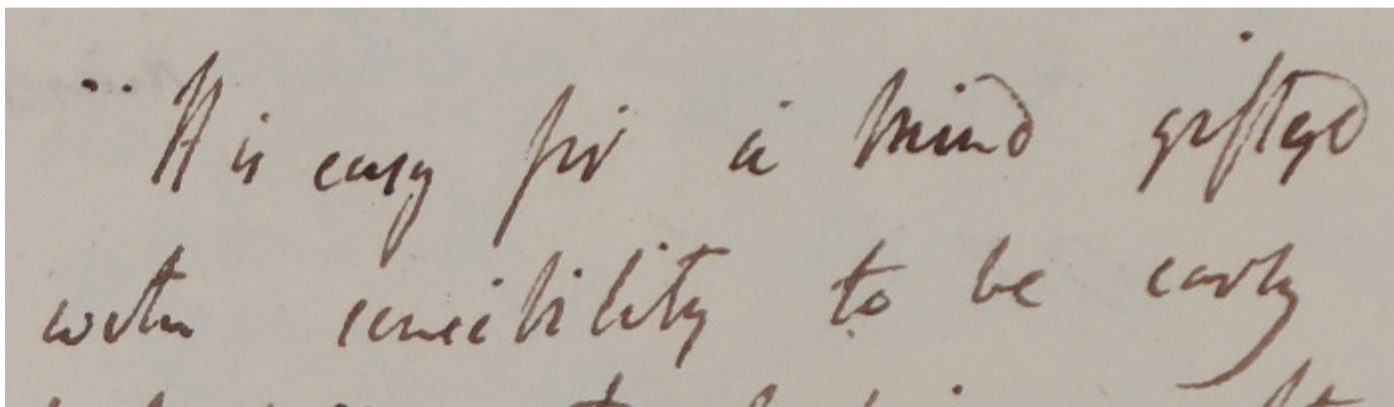 It is easy for a mind gifted
with sensibility to be early